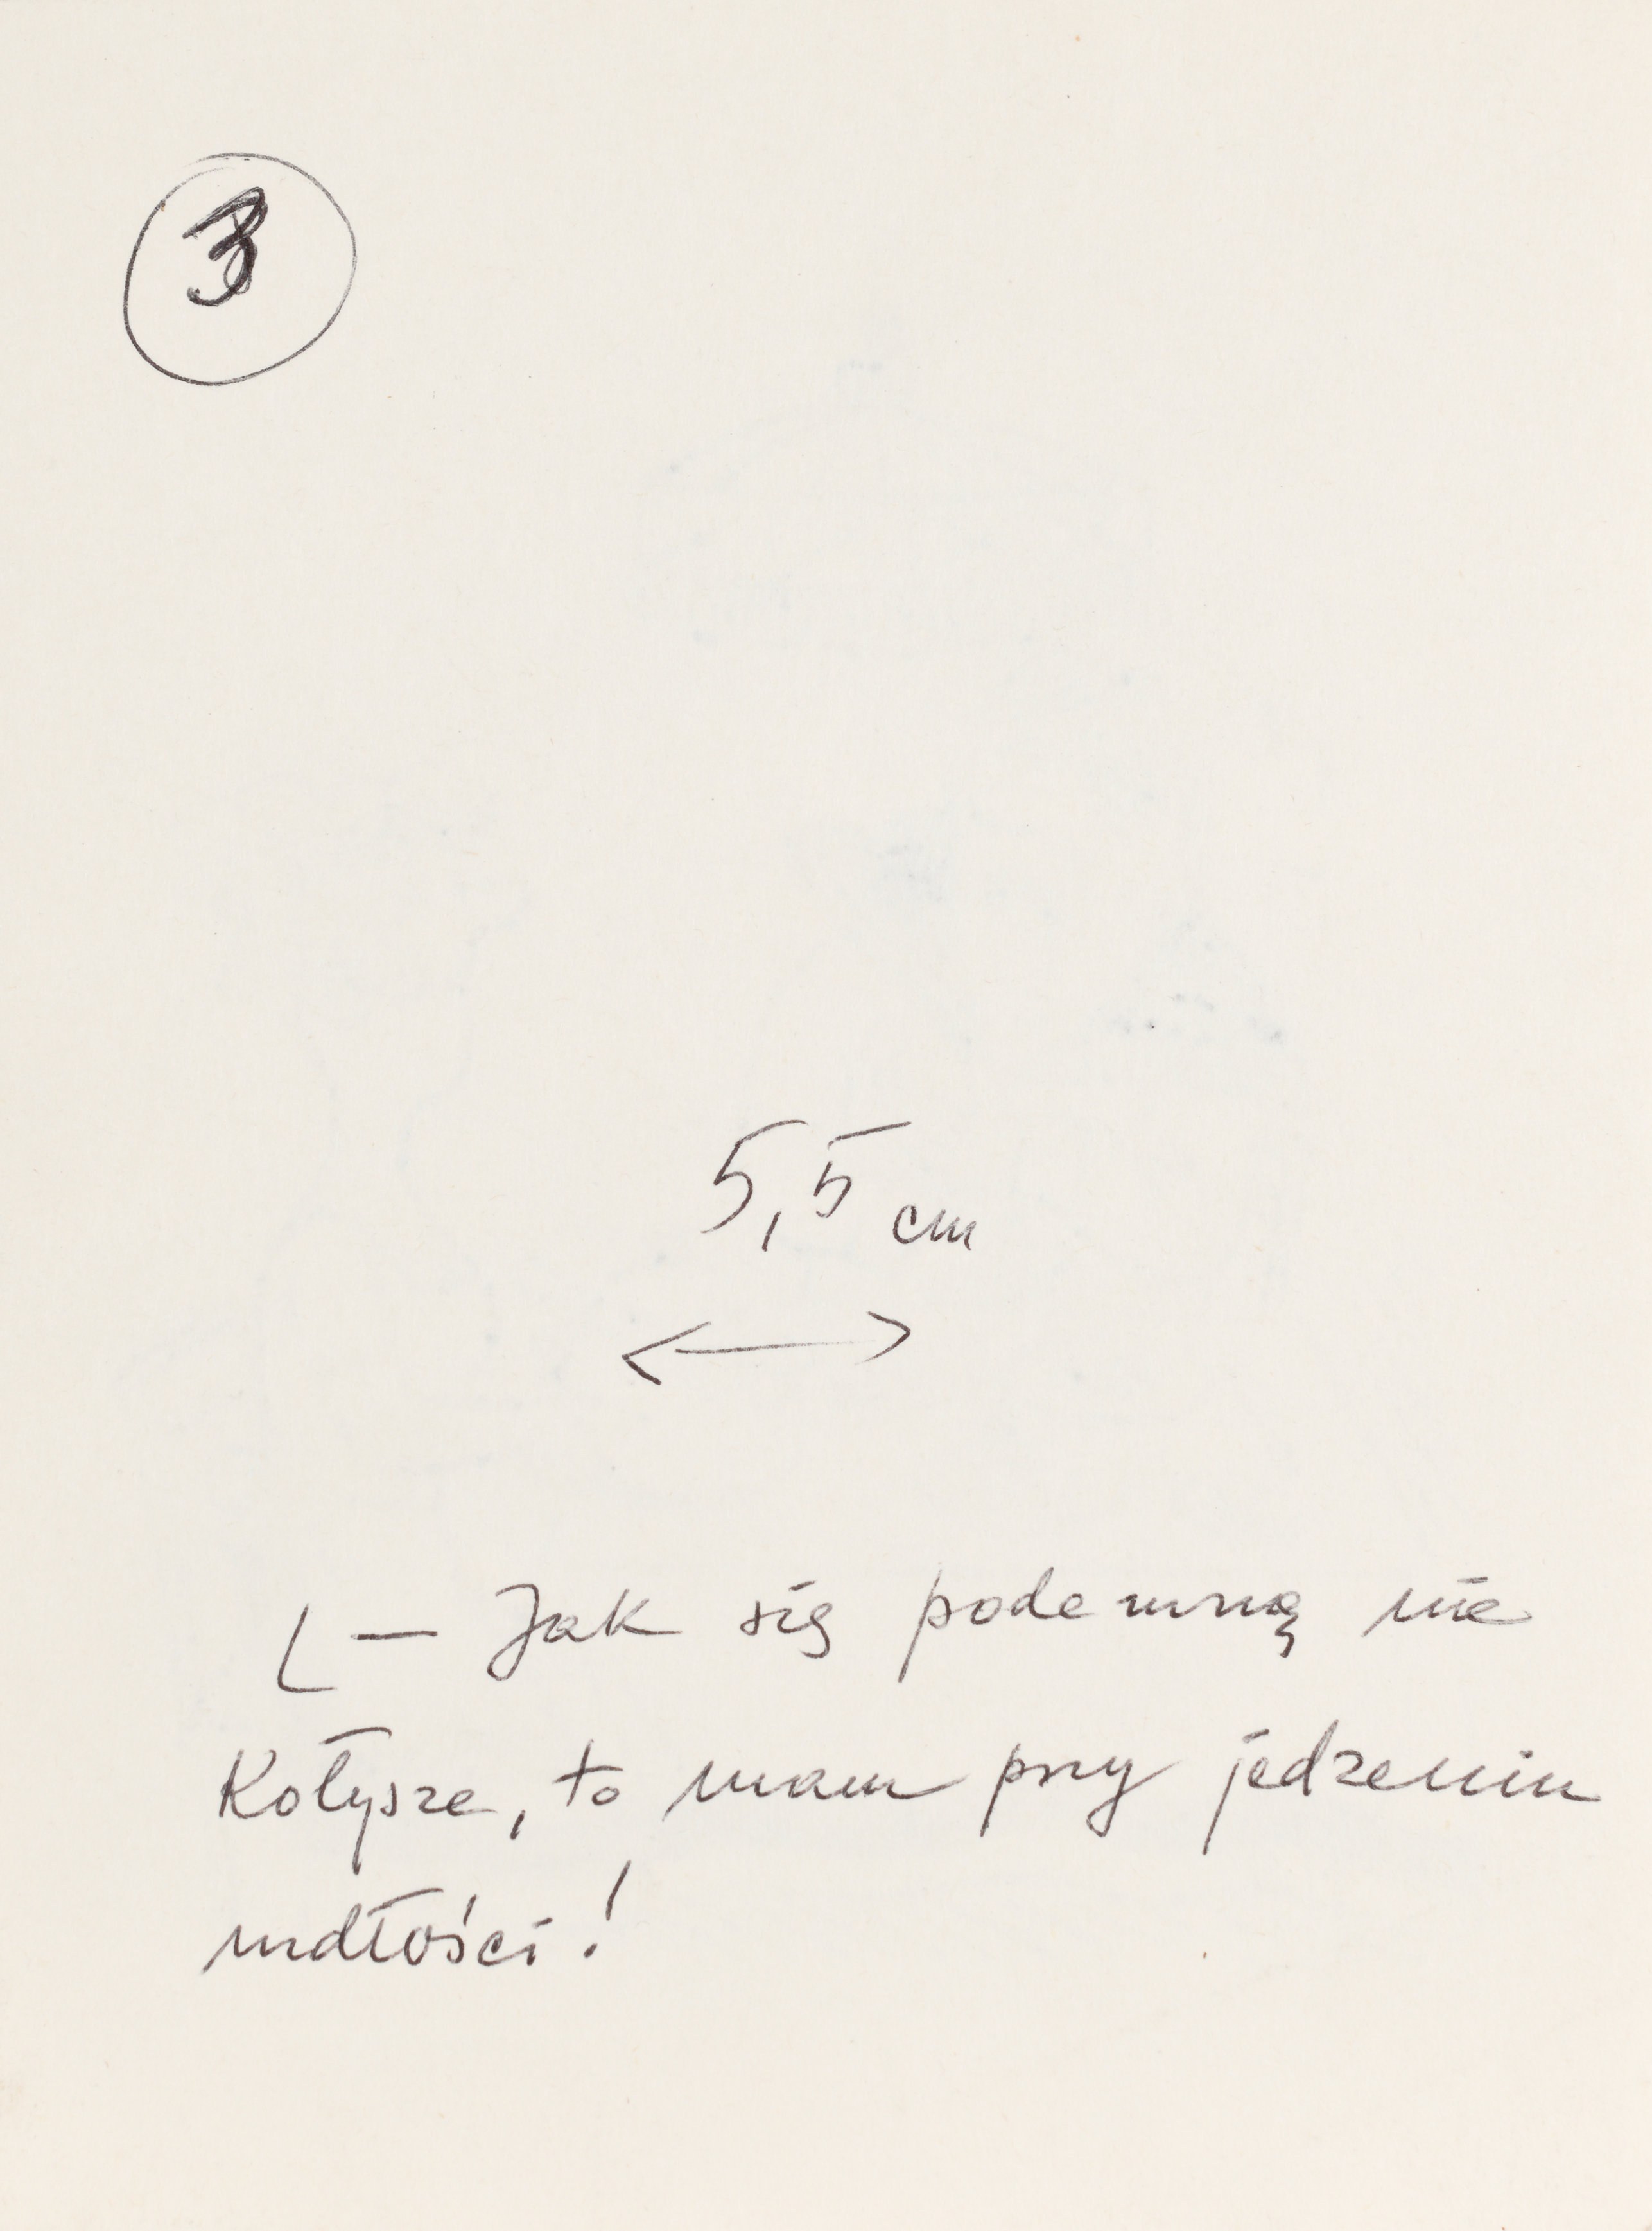 3
5,5 cm
— Jak się podemną nie
Kołysze, to mam przy jedzeniu
mdłości!